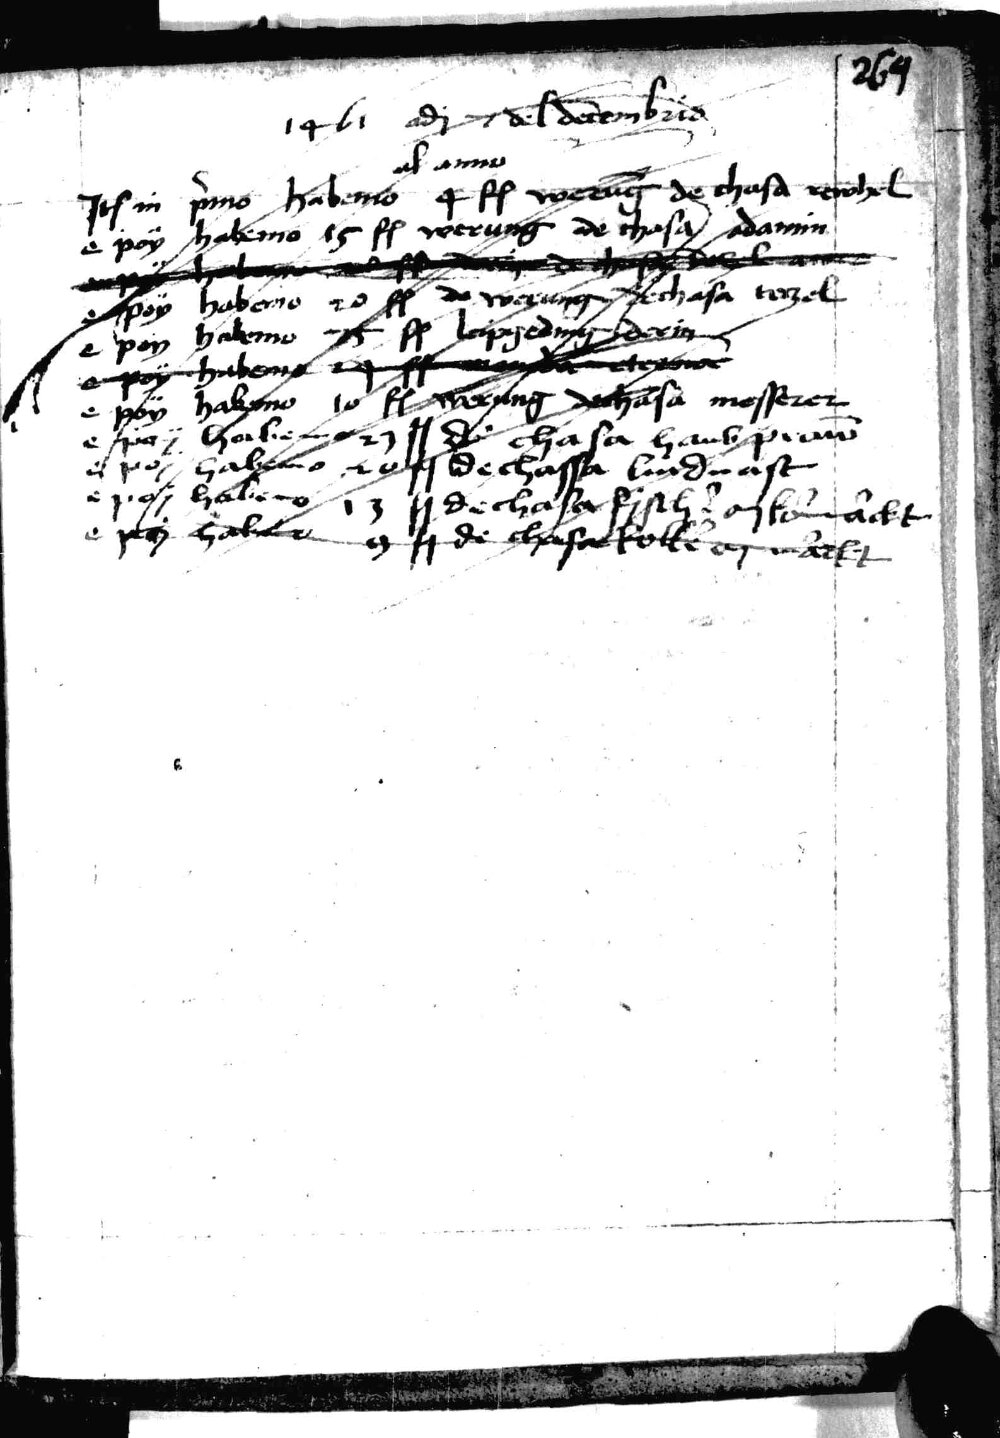 264
1461 adj 7 del decembrio
al anno
Its in pmo habemo 4 ff werung de chasa rewhel
e poÿ habemo 15 ff werung de chasa adamin
habemo 20 ff de chasa
e poÿ habemo 20 ff de werung de chasa terzel
e poÿ habemo 75 ff leipgeding derin
e poÿ habemo 24 ff eterna
e poÿ habemo 10 ff werung de chasa messerer
e poÿ habemo 27 ff de chasa
e poÿ habemo 20 ff de chassa lindnast
e poÿ habemo 13 ff de chasa
e poÿ habemo 9 ff de chasa